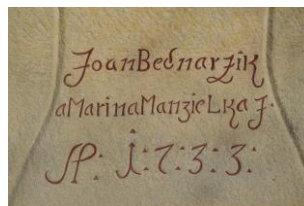 Joan Bednarzik
a Marina Manzielka J.
SP: 1:7:3:3: